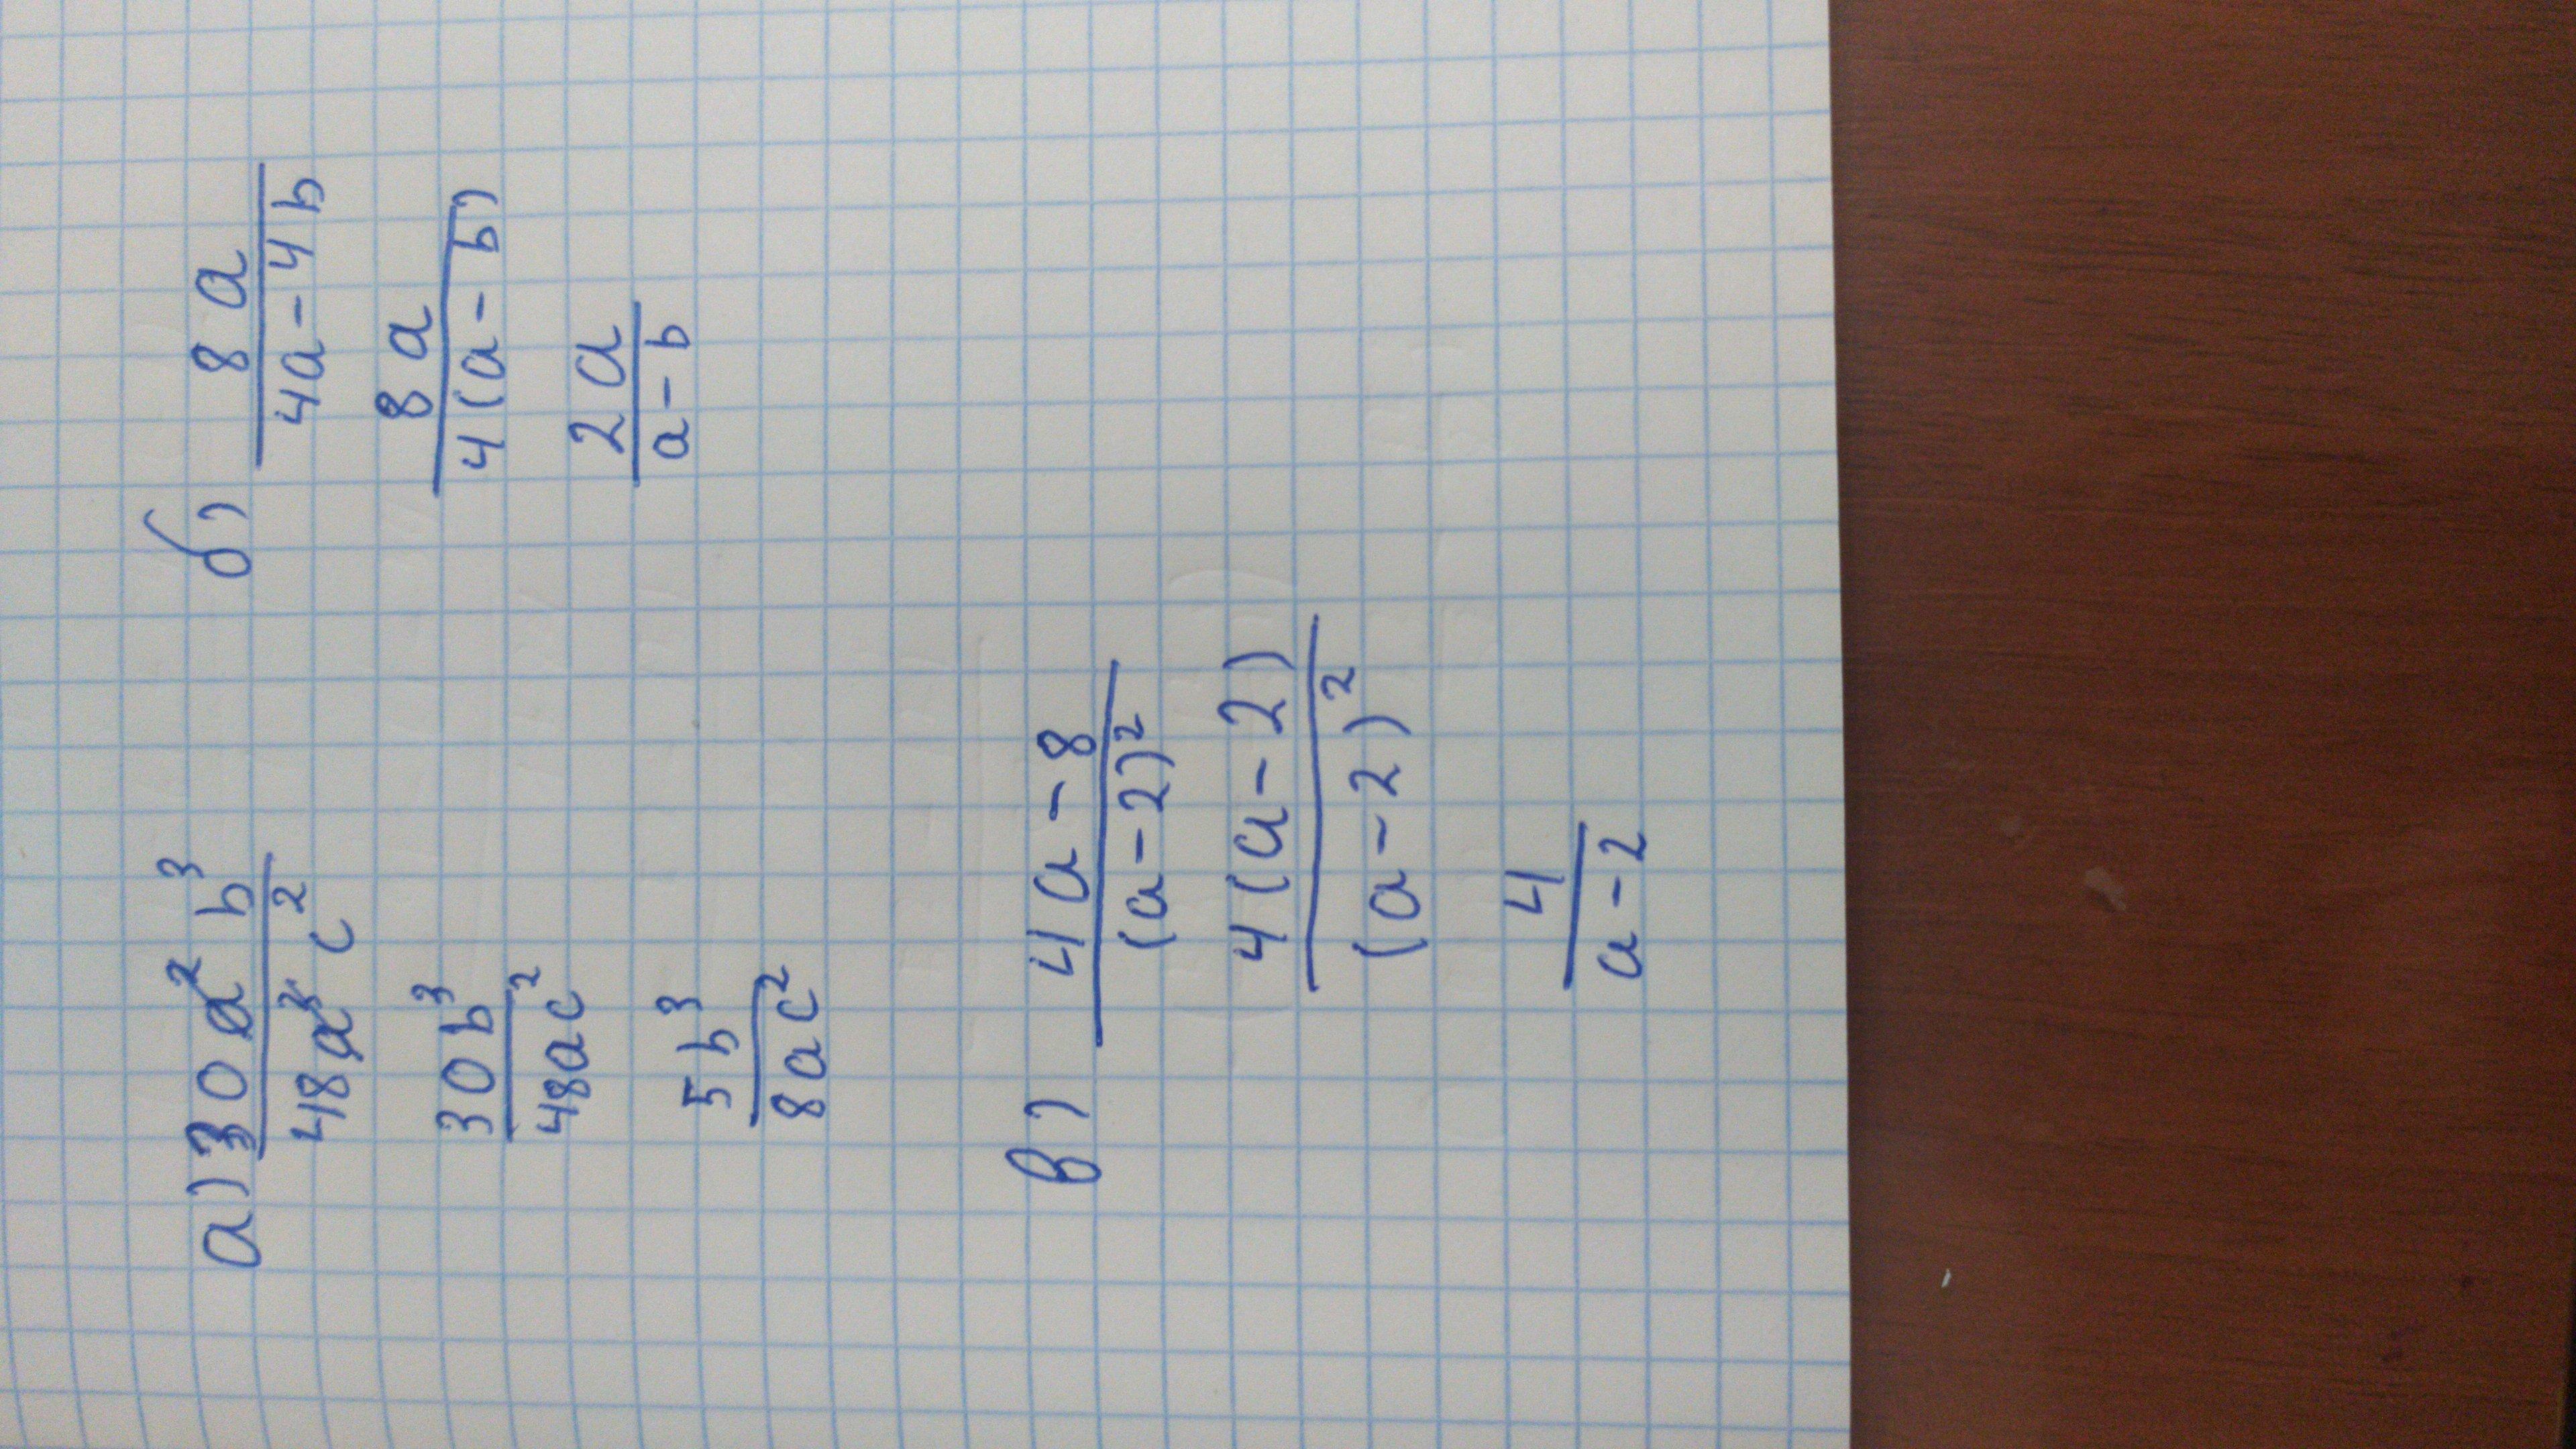 а) 30a²b³ / 48a³c²
30b³ / 48ac²
5b³ / 8ac²
б) 8a / 4a-4b
8a / 4(a-b)
2a / a-b
в) 4a-8 / (a-2)²
4(a-2) / (a-2)²
4 / a-2